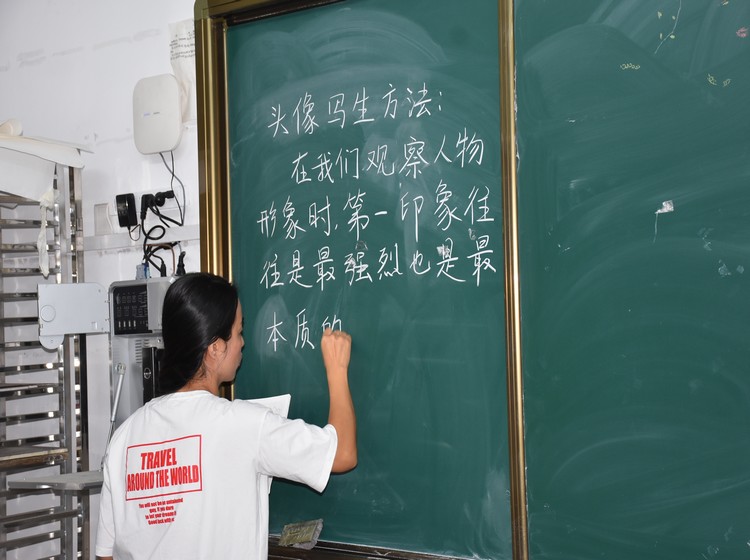 头像写生方法:
在我们观察人物
形象时,第一印象往
往是最强烈也是最
本质的
TRAVEL
AROUND THE WORLD
You will not be so unashamed